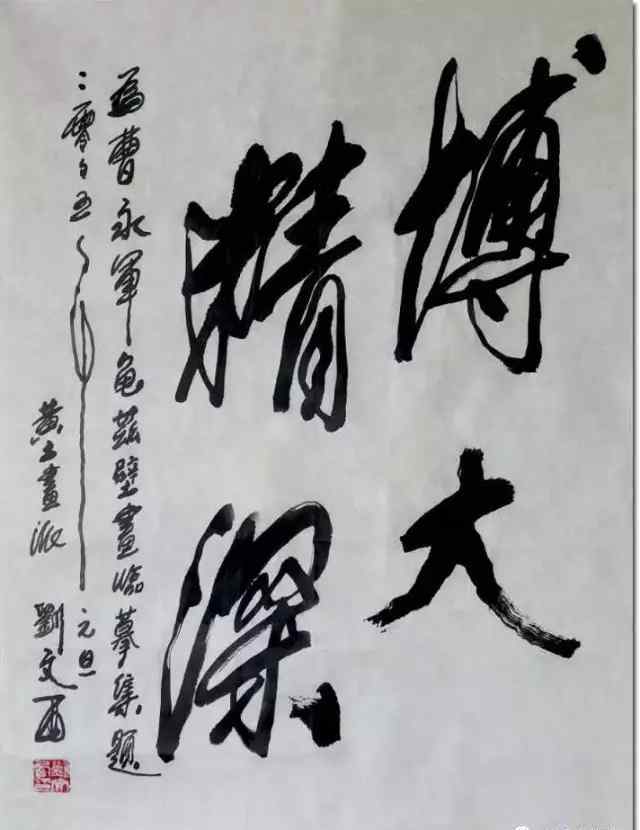 博大
精深
為曹永軍龜茲壁畫臨摹集題
二零零五年元旦
黄土畫派 劉文西